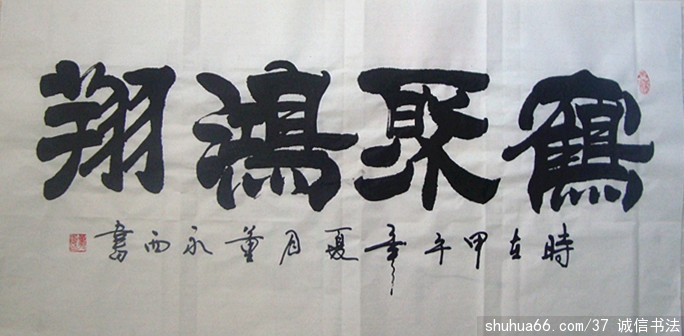 鶴聚鴻翔
時在甲午年夏月董永西書
shuhua66.com/37 诚信书法